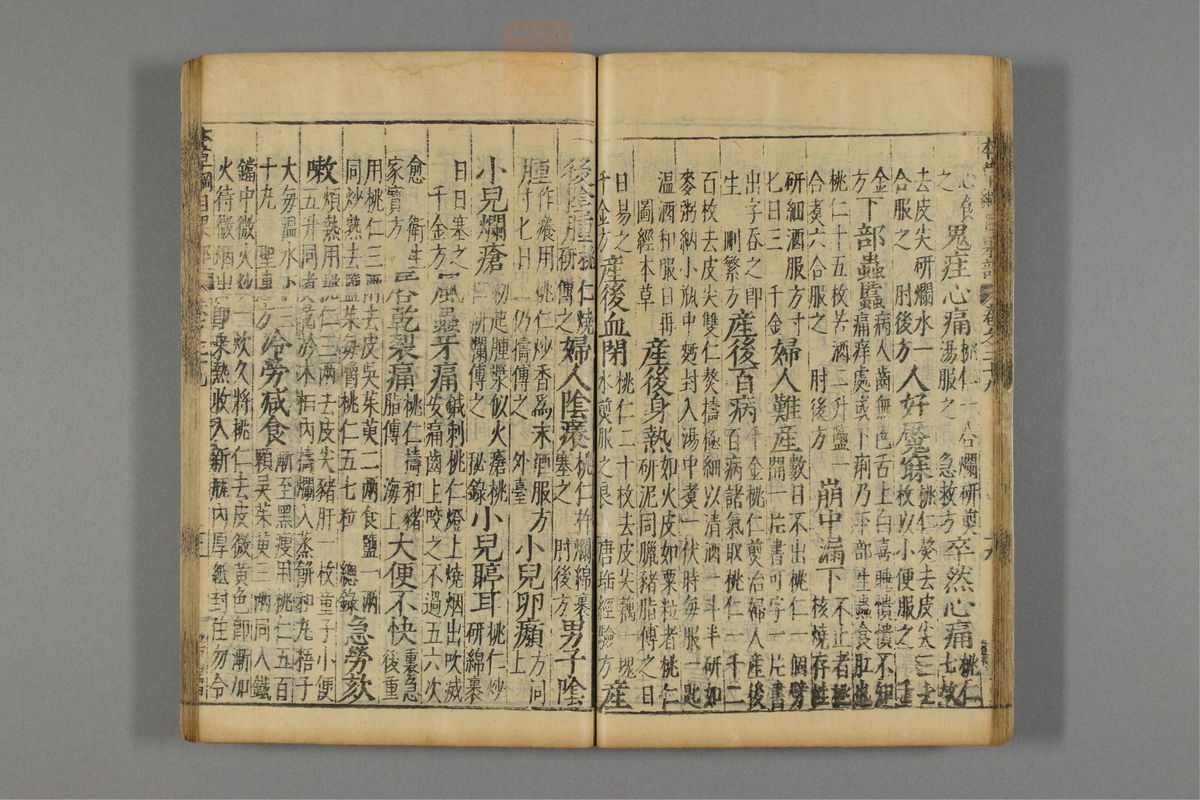 之去皮尖研爛水一合服之 肘後方 人好魘寐 桃仁熬去皮尖三七枚以小便服之 千
金方 下部蟲䘌 病人齒無色舌上白喜睡憒憒不知痛痒處或下痢乃下部生蟲食肛也
桃仁十五枚苦酒二升鹽一合煮六合服之 肘後方 崩中漏下 不止者
核燒存性研細酒服方寸匕日三 千金 婦人難産 數日不出桃仁一個劈開一片書可字一片書
出字吞之即生 刪繁方 産後百病 千金桃仁煎治婦人産後百病諸氣取桃仁一千二
百枚去皮尖雙仁熬擣極細以清酒一斗半研如麥粥納小瓶中麪封入湯中煮一伏時每服一匙
温酒和服日再 圖經本草 産後身熱 如火皮如粟粒者桃仁研泥同臘豬脂傅之日
日易之 千金方 産後血閉 桃仁二十枚去皮尖藕一塊水煎服之良 唐瑶經驗方 産
後陰腫 桃仁燒研傅之 婦人陰癢 桃仁杵爛綿裹塞之 肘後方 男子陰
腫 作癢用桃仁炒香爲末酒服方寸匕日二仍擣傅之 外臺 小兒卵癩 方同上
小兒爛瘡 初起腫漿似火瘡桃仁研爛傅之 秘錄 小兒聤耳 桃仁炒研綿裹
日日塞之 千金方 風蟲牙痛 鍼刺桃仁燈上燒烟出吹滅安痛齒上咬之不過五六次
愈 衛生家寶方 唇乾裂痛 桃仁擣和豬脂傅 海上 大便不快 裏急後重
用桃仁三兩去皮吳茱萸二兩食鹽一兩同炒熟去鹽茱每嚼桃仁五七粒 總錄 急勞欬
嗽 煩熱用桃仁三兩去皮尖豬肝一枚童子小便五升同煮乾於木臼内擣爛入蒸餅和丸梧子
大每温水下三十丸 聖惠方 冷勞減食 漸至黑瘦用桃仁五百顆吳茱萸三兩同入鐵
鐺中微火炒一炊久將桃仁去皮微黄色即漸加火待微烟出即乘熱收入新瓶内厚紙封住勿令